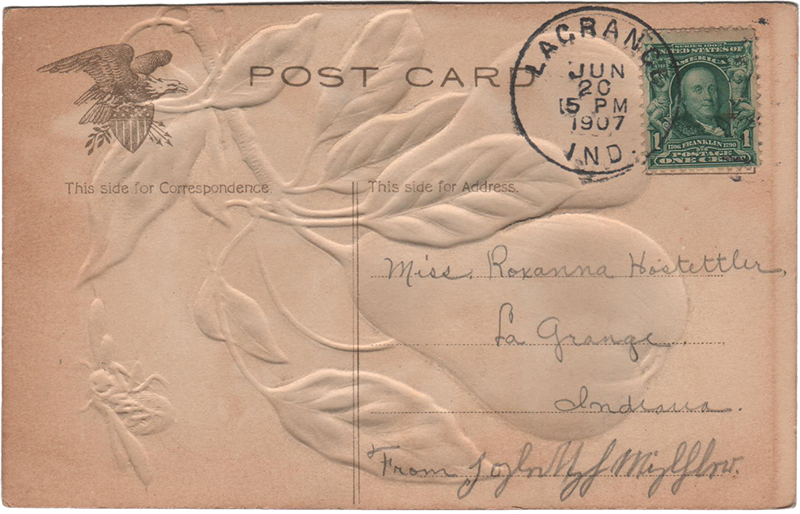 POST CARD
LAGRANGE
JUN
20
5 PM
1907
IND.
SERIES 1902
UNITED STATES OF
AMERICA
1 1706 FRANKLIN 1790 1
POSTAGE
ONE CENT
This side for Correspondence.
This side for Address.
Miss. Roxanna Hostettler,
La Grange.
Indiana.
From